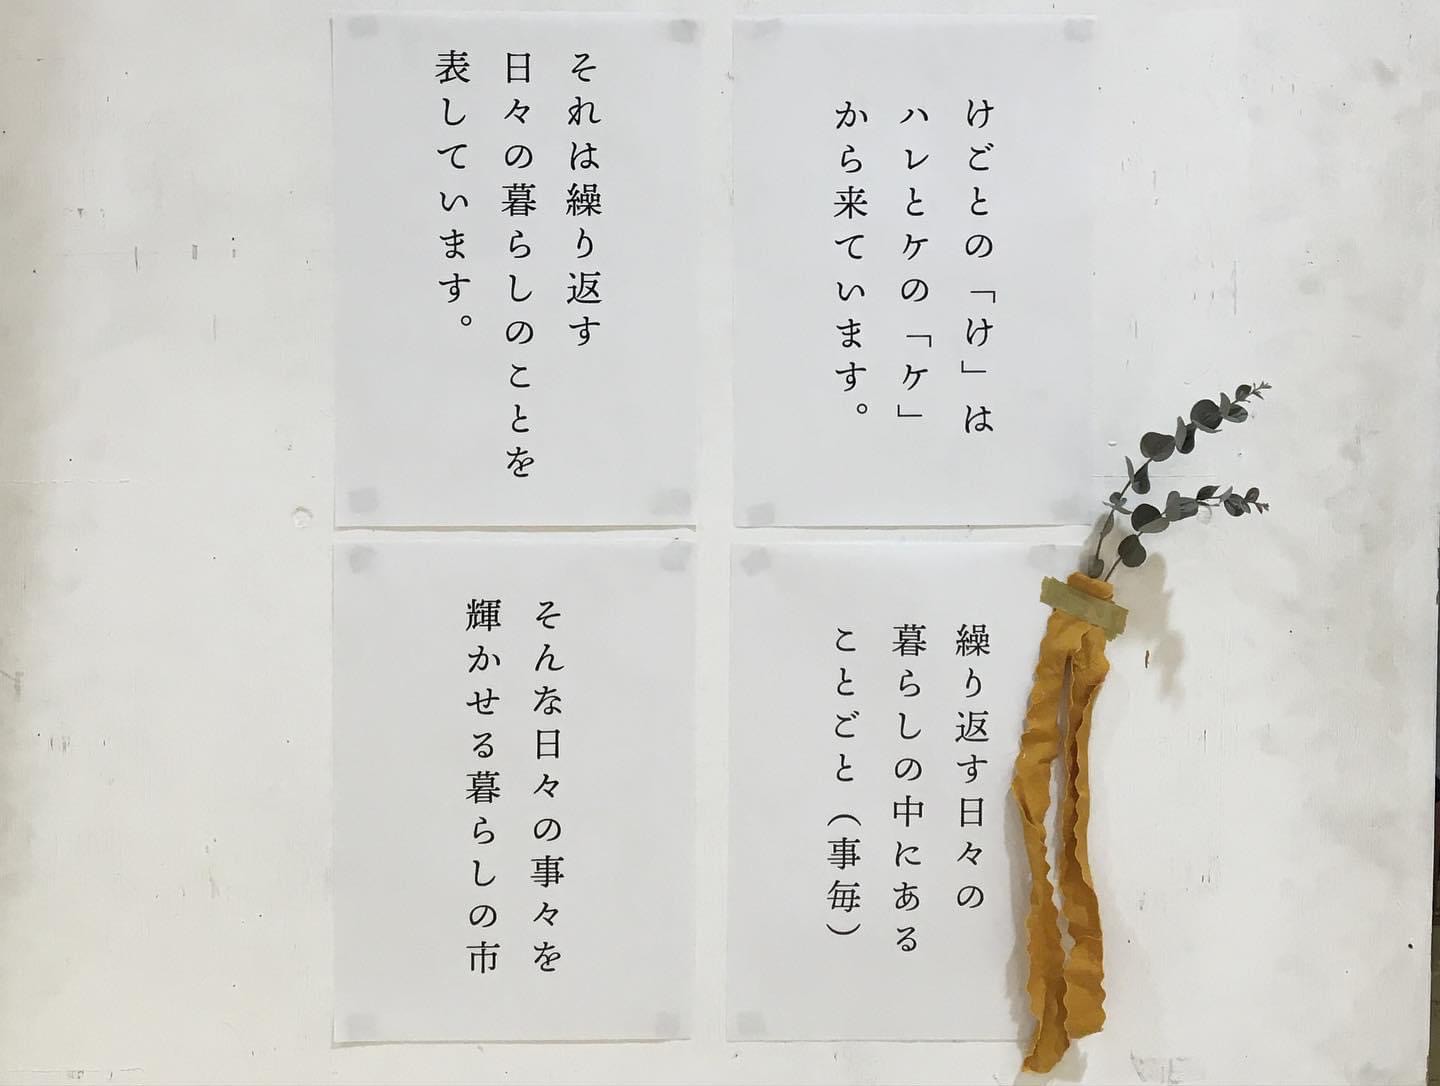 けごとの「け」は
ハレとケの「ケ」
から来ています。
それは繰り返す
日々の暮らしのことを
表しています。
繰り返す日々の
暮らしの中にある
ことごと（事毎）
そんな日々の事々を
輝かせる暮らしの市